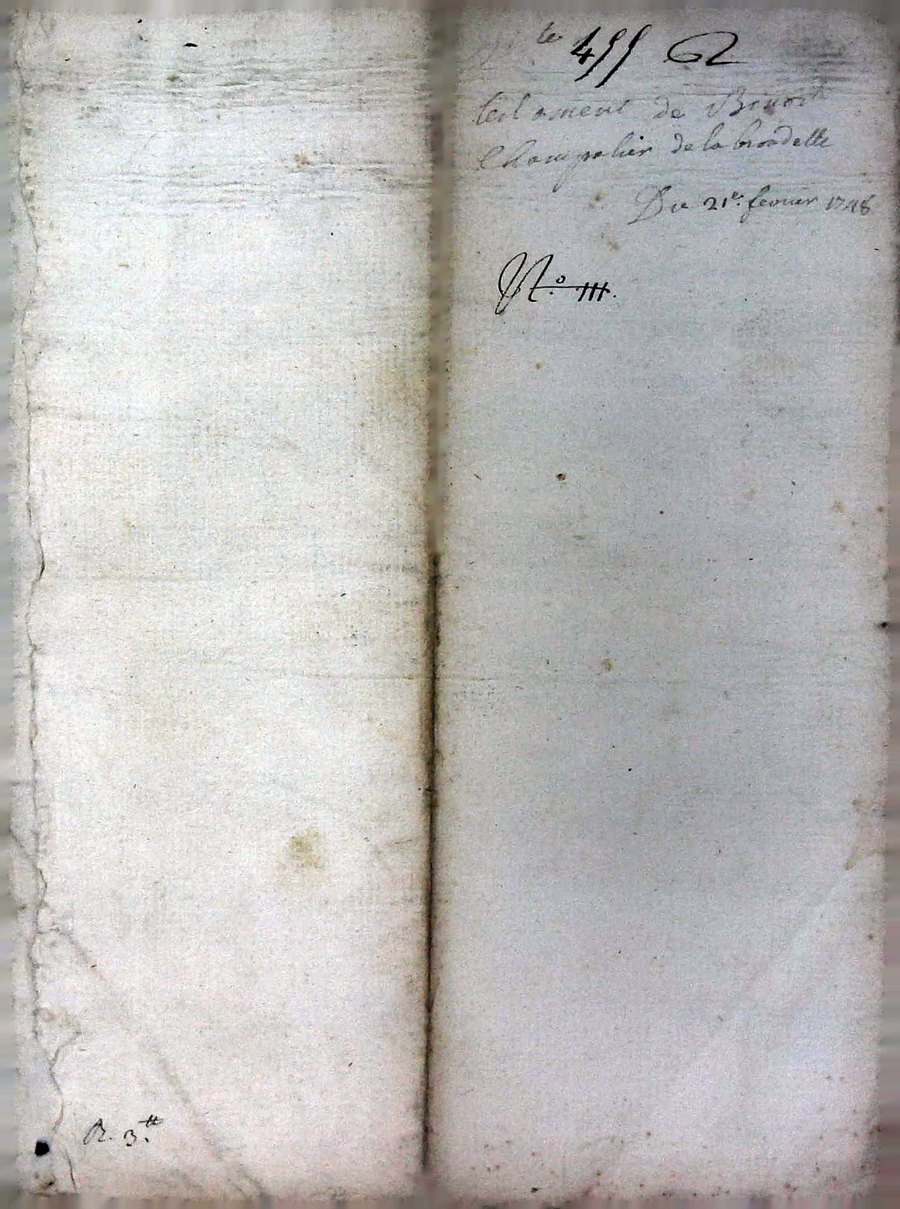 455 62
testament de Benoit
Champalier de la bradelle
Du 21e. fevrier 1748
N.o III.
R. 3.tt